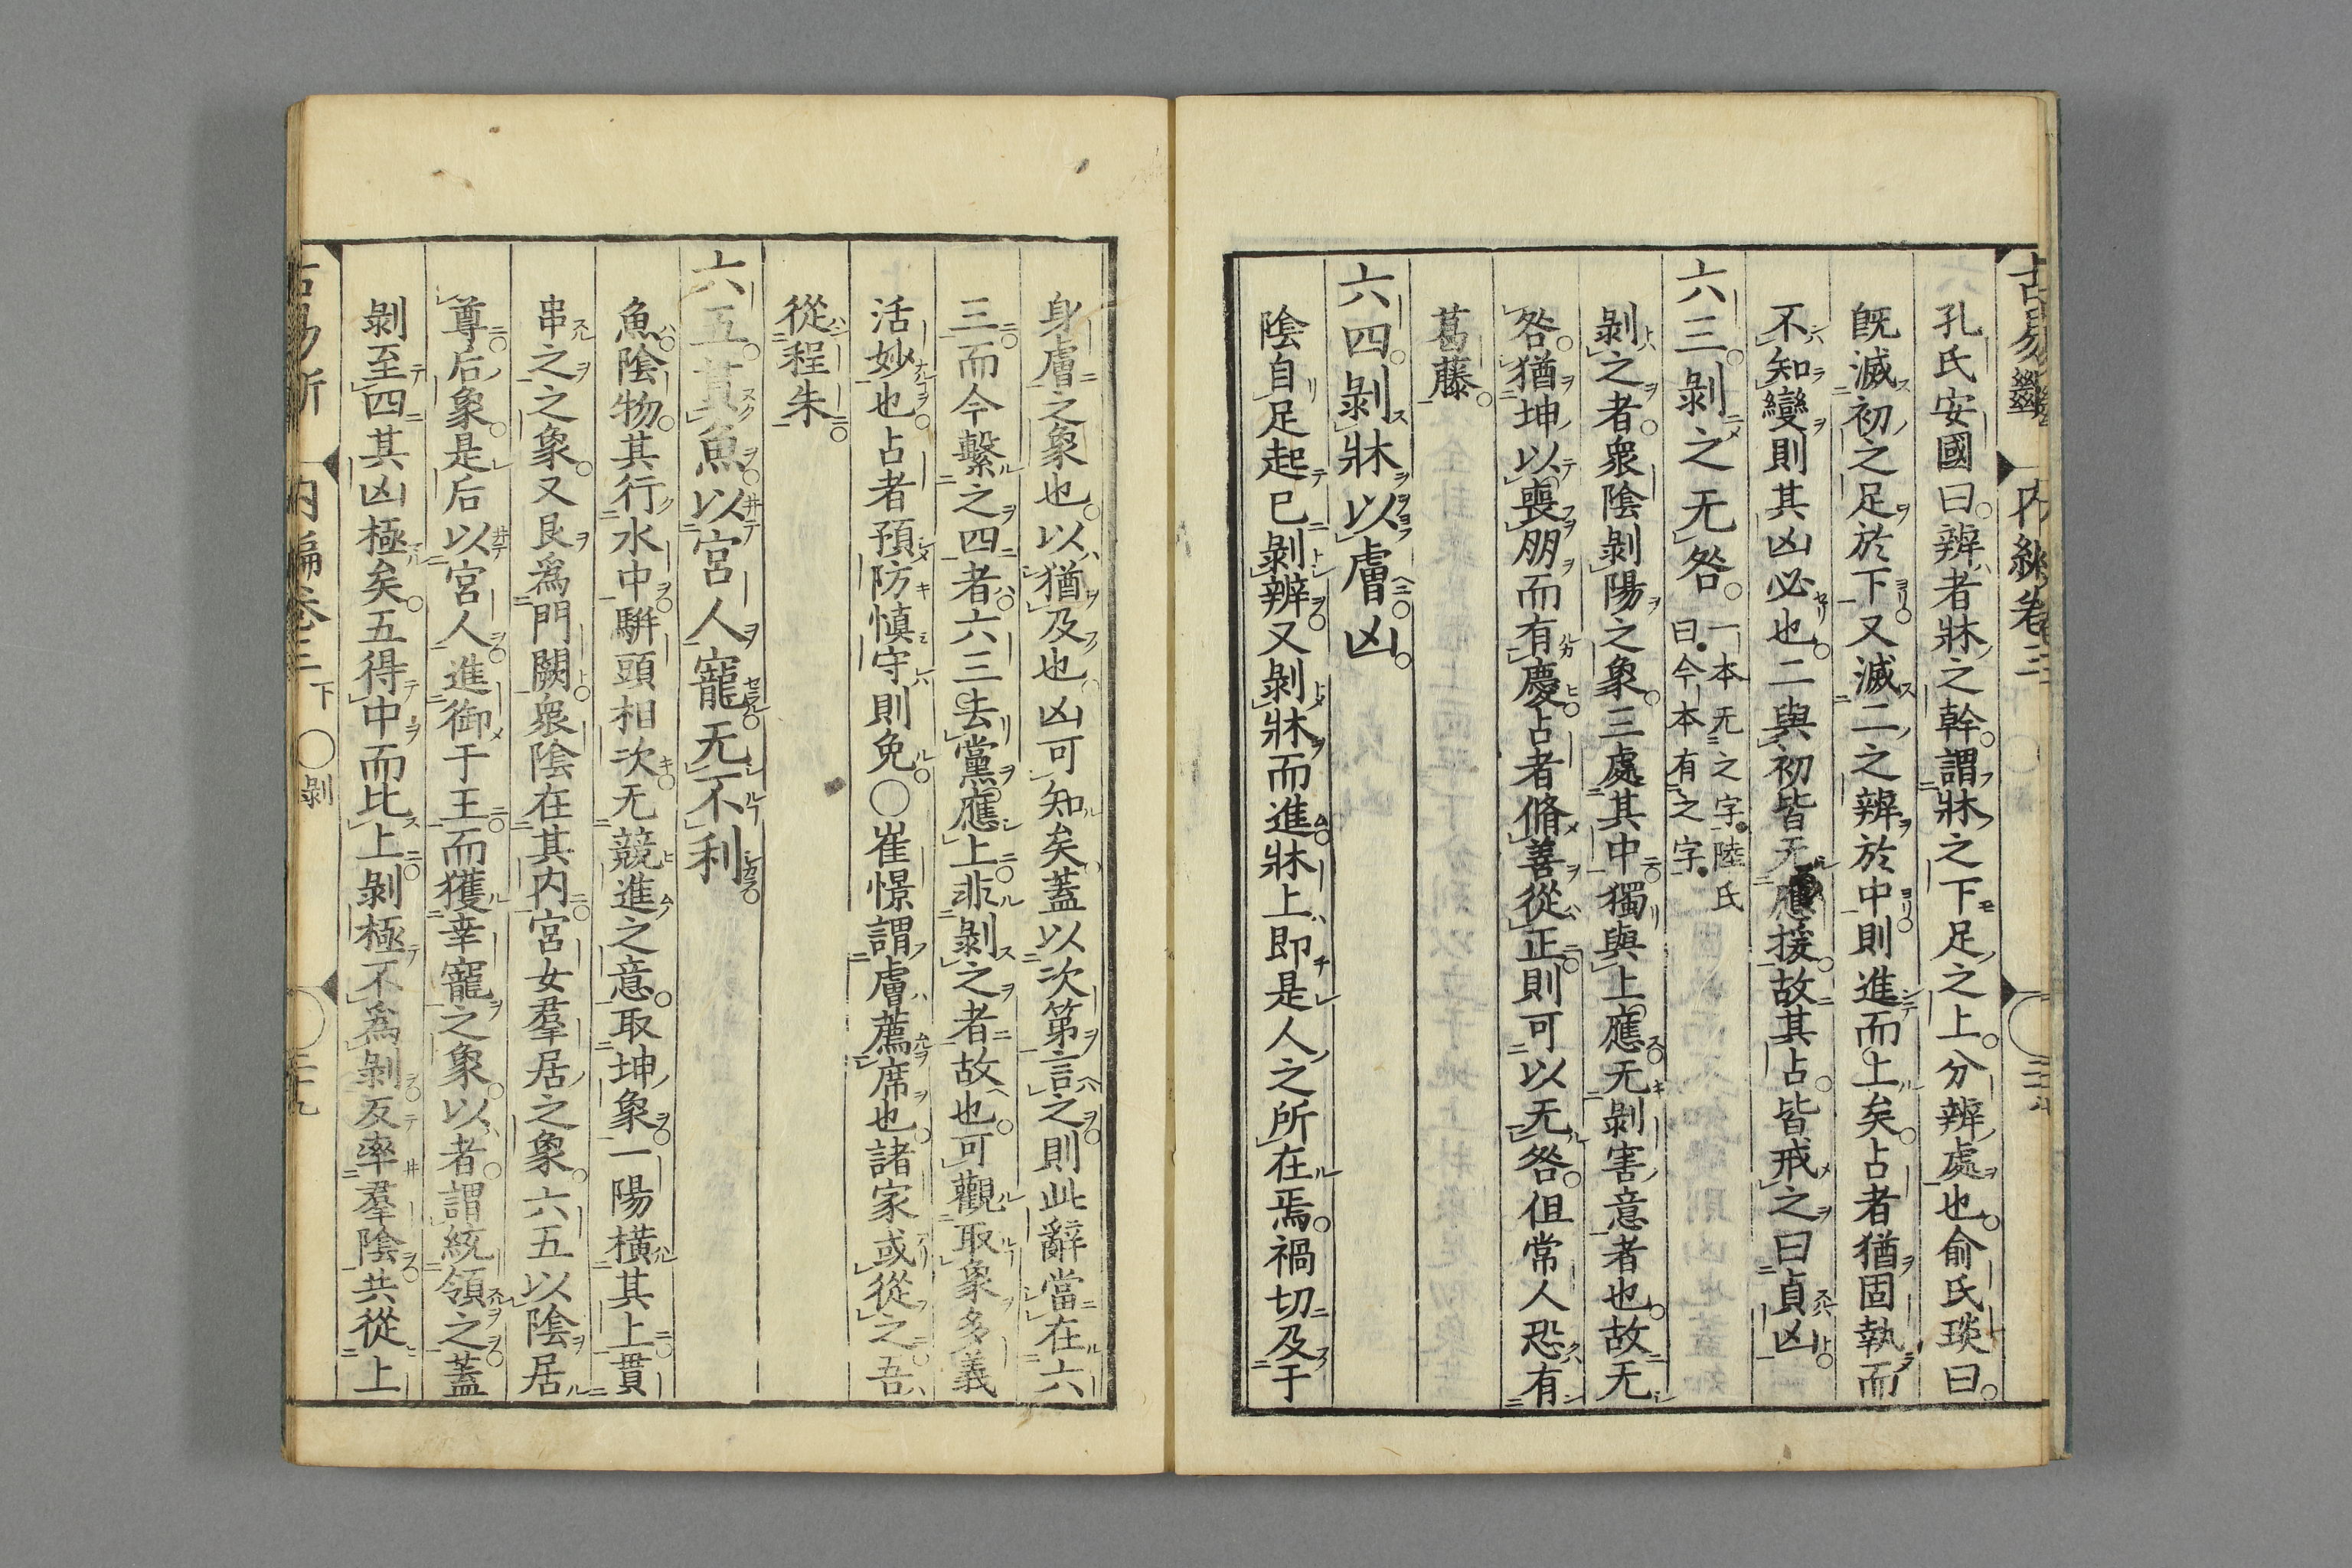 孔氏安國曰辨者牀之幹謂牀之下足之上分辨處也俞氏琰曰
既滅初之足於下又滅二之辨於中則進而上矣占者猶固執而
不知變則其凶必也二與初皆无應援故其占皆戒之曰貞凶
六三剝之无咎 一本无之字陸氏曰今本有之字
剝之者衆陰剝陽之象三處其中獨與上應无剝害意者也故无
咎猶坤以喪朋而有慶占者脩善從正則可以无咎但常人恐有
葛藤
六四剝牀以膚凶
陰自足起已剝辨又剝牀而進牀上即是人之所在焉禍切及于
身膚之象也以猶及也凶可知矣蓋以次第言之則此辭當在六
三而今繫之四者六三去黨應上非剝之者故也可觀取象多義
活妙也占者預防慎守則免〇崔憬謂膚薦席也諸家或從之吾
從程朱
六五貫魚以宮人寵无不利
魚陰物其行水中駢頭相次无競進之意取坤象一陽橫其上貫
串之之象又艮爲門闕衆陰在其内宮女羣居之象六五以陰居
尊后象是后以宮人進御于王而獲幸寵之象以者謂統領之蓋
剝至四其凶極矣五得中而比上剝極不爲剝反率羣陰共從上
内編卷三 下 〇剝